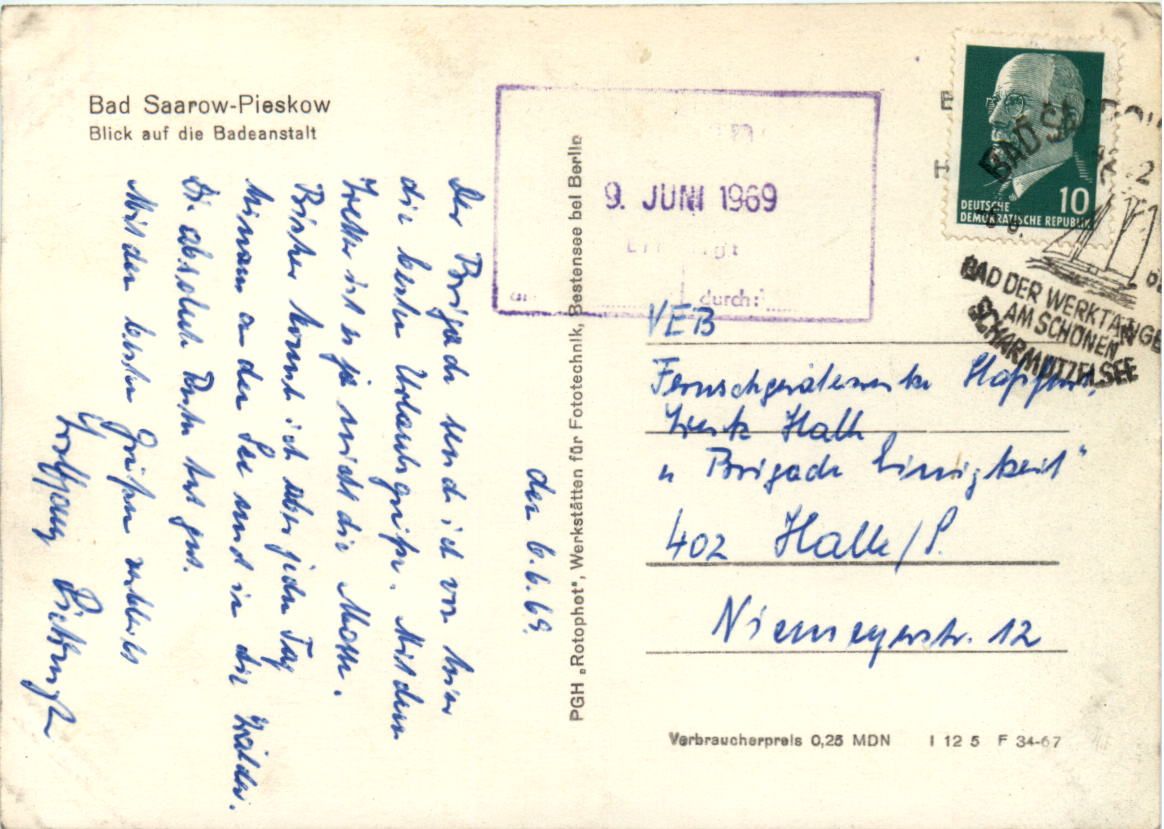 Bad Saarow-Pieskow
Blick auf die Badeanstalt
den 6.6.69.
Der Brigade send ich von hier
die besten Urlaubsgrüße. Mit dem
Wetter ist es ja nicht die Masse.
Bisher konnt ich aber jeden Tag
hinaus an den See und in die Wälder.
Die absolute Ruhe tut gut.
Mit den besten Grüßen verbleibt
Wolfgang
PGH „Rotophot", Werkstätten für Fototechnik, Bestensee bei Berlin
9. JUNI 1969
durch:
DEUTSCHE
DEMOKRATISCHE REPUBLIK
10
BAD
BAD DER WERKTÄTIGEN
AM SCHÖNEN
SCHARMÜTZELSEE
VEB
Fernsehgerätewerke Staßfurt,
Werk Halle
" Brigade Einigkeit "
402 Halle/S.
Niemeyerstr. 12
Verbraucherpreis 0,25 MDN I 12 5 F 34-67